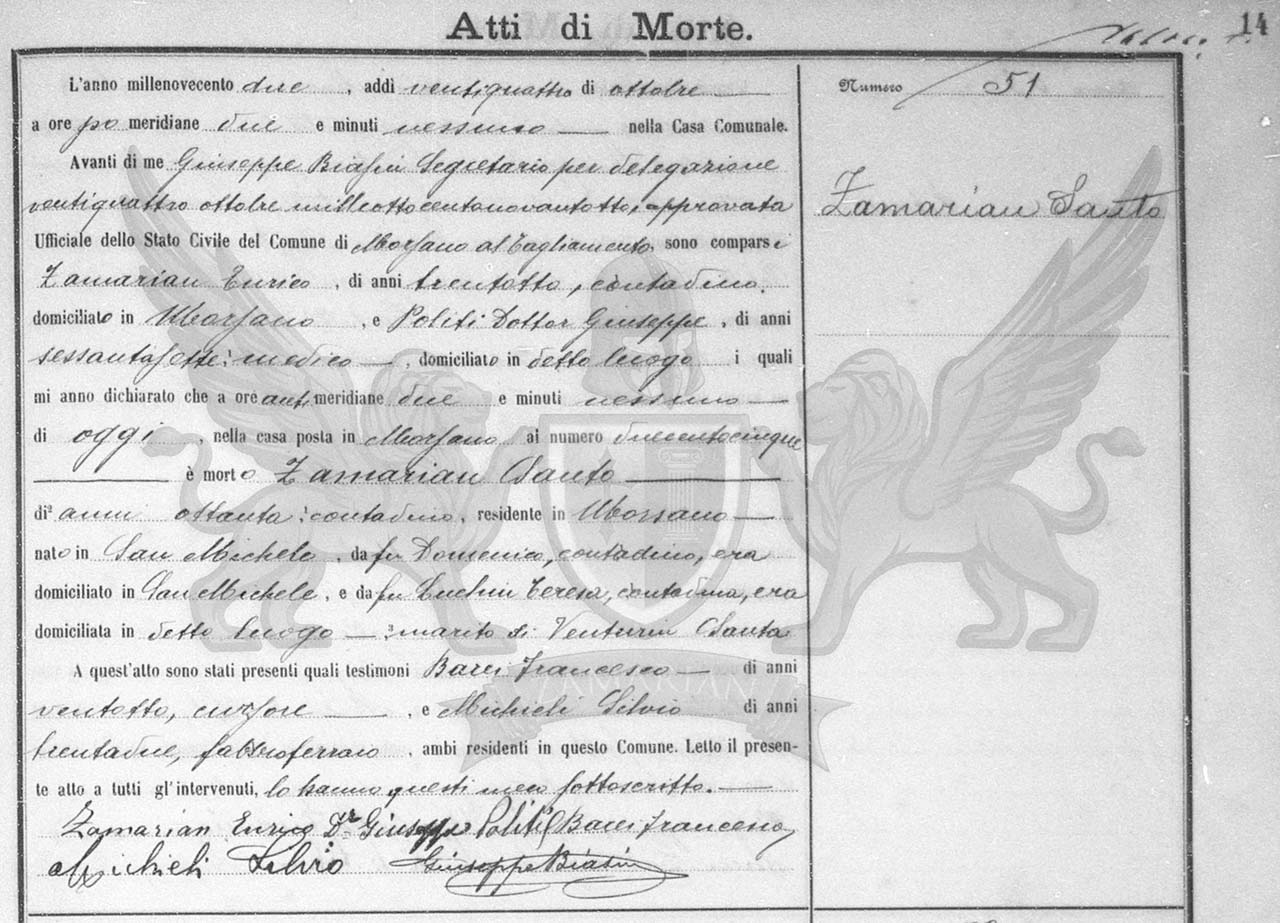 Atti di Morte.
14
Numero 51
Zamarian Santo
L'anno millenovecento due, addì ventiquattro di ottobre
a ore po meridiane due e minuti nessuno nella Casa Comunale.
Avanti di me Giuseppe Biasin Segretario per delegazione
ventiquattro ottobre milleottocentonovantotto, approvata
Ufficiale dello Stato Civile del Comune di Morsano al Tagliamento, sono comparsi
Zamarian Enrico, di anni trentotto, contadino,
domiciliato in Morsano, e Politi Dottor Giuseppe, di anni
sessantasette, medico, domiciliato in detto luogo i quali
mi anno dichiarato che a ore antimeridiane due e minuti nessuno
di oggi, nella casa posta in Morsano al numero duecentocinque
è morto Zamarian Santo
di anni ottanta, contadino, residente in Morsano
nato in San Michele, da fu Domenico, contadino, era
domiciliato in San Michele, e da fu Luchin Teresa, contadina, era
domiciliata in detto luogo marito di Venturin Santa
A quest'atto sono stati presenti quali testimoni Barei Francesco di anni
ventotto, cursore, e Michieli Silvio di anni
trentadue, fabbroferraio, ambi residenti in questo Comune. Letto il presen-
te atto a tutti gl'intervenuti, lo hanno questi meco sottoscritto.
Zamarian Enrico Dr Giuseppe Politi Barei Francesco
Michieli Silvio Giuseppe Biasin
ZAMARIAN